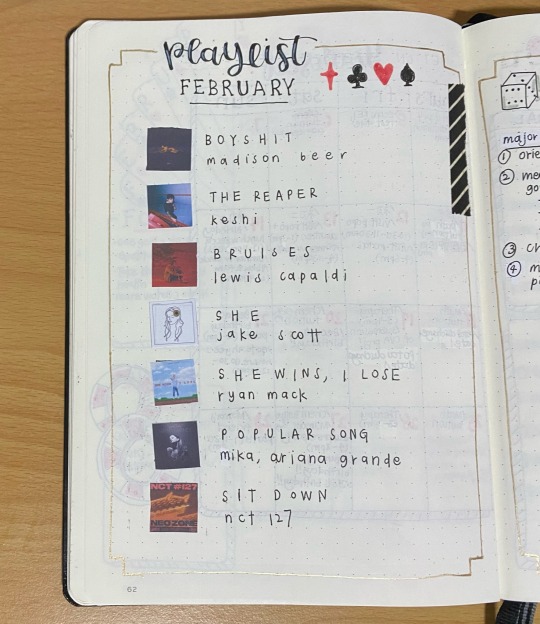 playlist
FEBRUARY
BOYSHIT
madison beer
THE REAPER
keshi
BRUISES
lewis capaldi
SHE
jake scott
SHE WINS, I LOSE
ryan mack
POPULAR SONG
mika, ariana grande
SIT DOWN
nct 127
NCT #127
NEO ZONE
62
major
① orie
② me
go
③ ch
④ m
p